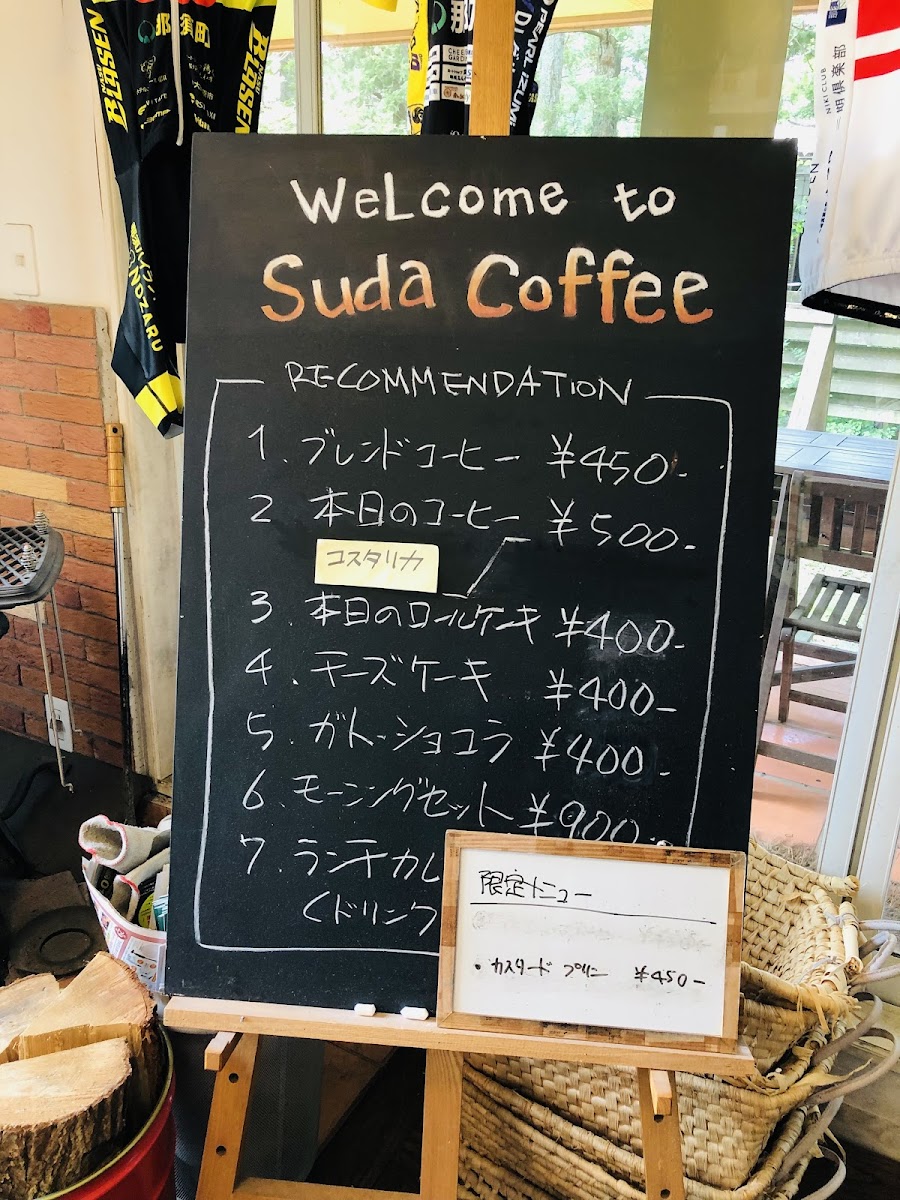 那須町
BLÄSEN
BLÄSEN
NOZARU
那
CHEESE GARDEN
PEARL iZUMi
NIKI CLUB
二期倶楽部
WeLcome to
Suda Coffee
RECOMMENDATION
1. ブレンドコーヒー ¥450-
2 本日のコーヒー ¥500-
コスタリカ
3. 本日のロールケーキ ¥400-
4. チーズケーキ ¥400-
5. ガトーショコラ ¥400-
6. モーニングセット ¥900-
7. ランチカレ
<ドリンク
限定メニュー
• カスタード プリン ¥450-